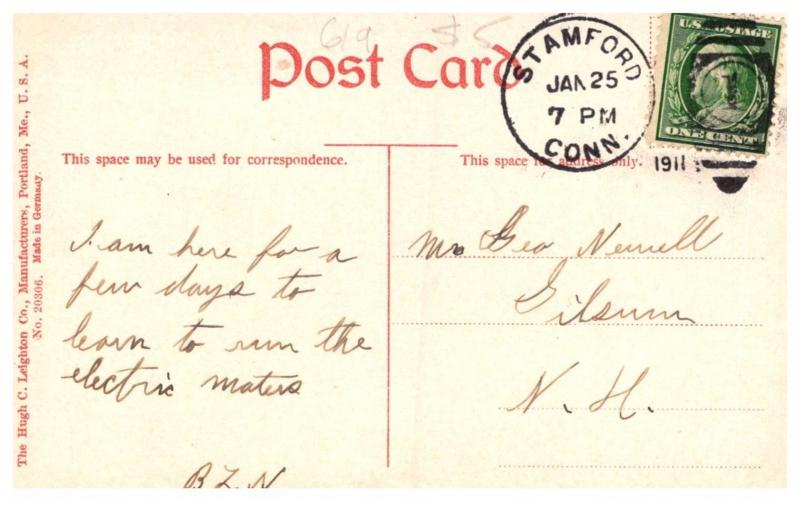 619 $5
Post Card
STAMFORD
JAN 25
7 PM
CONN.
1911
U.S. POSTAGE
ONE CENT
This space may be used for correspondence.
This space for address only.
I am here for a
few days to
learn to run the
electric maters
B.L.N
Mr Geo Newell
Gilsum
N. H.
The Hugh C. Leighton Co., Manufacturers, Portland, Me., U. S. A.
No. 20306. Made in Germany.